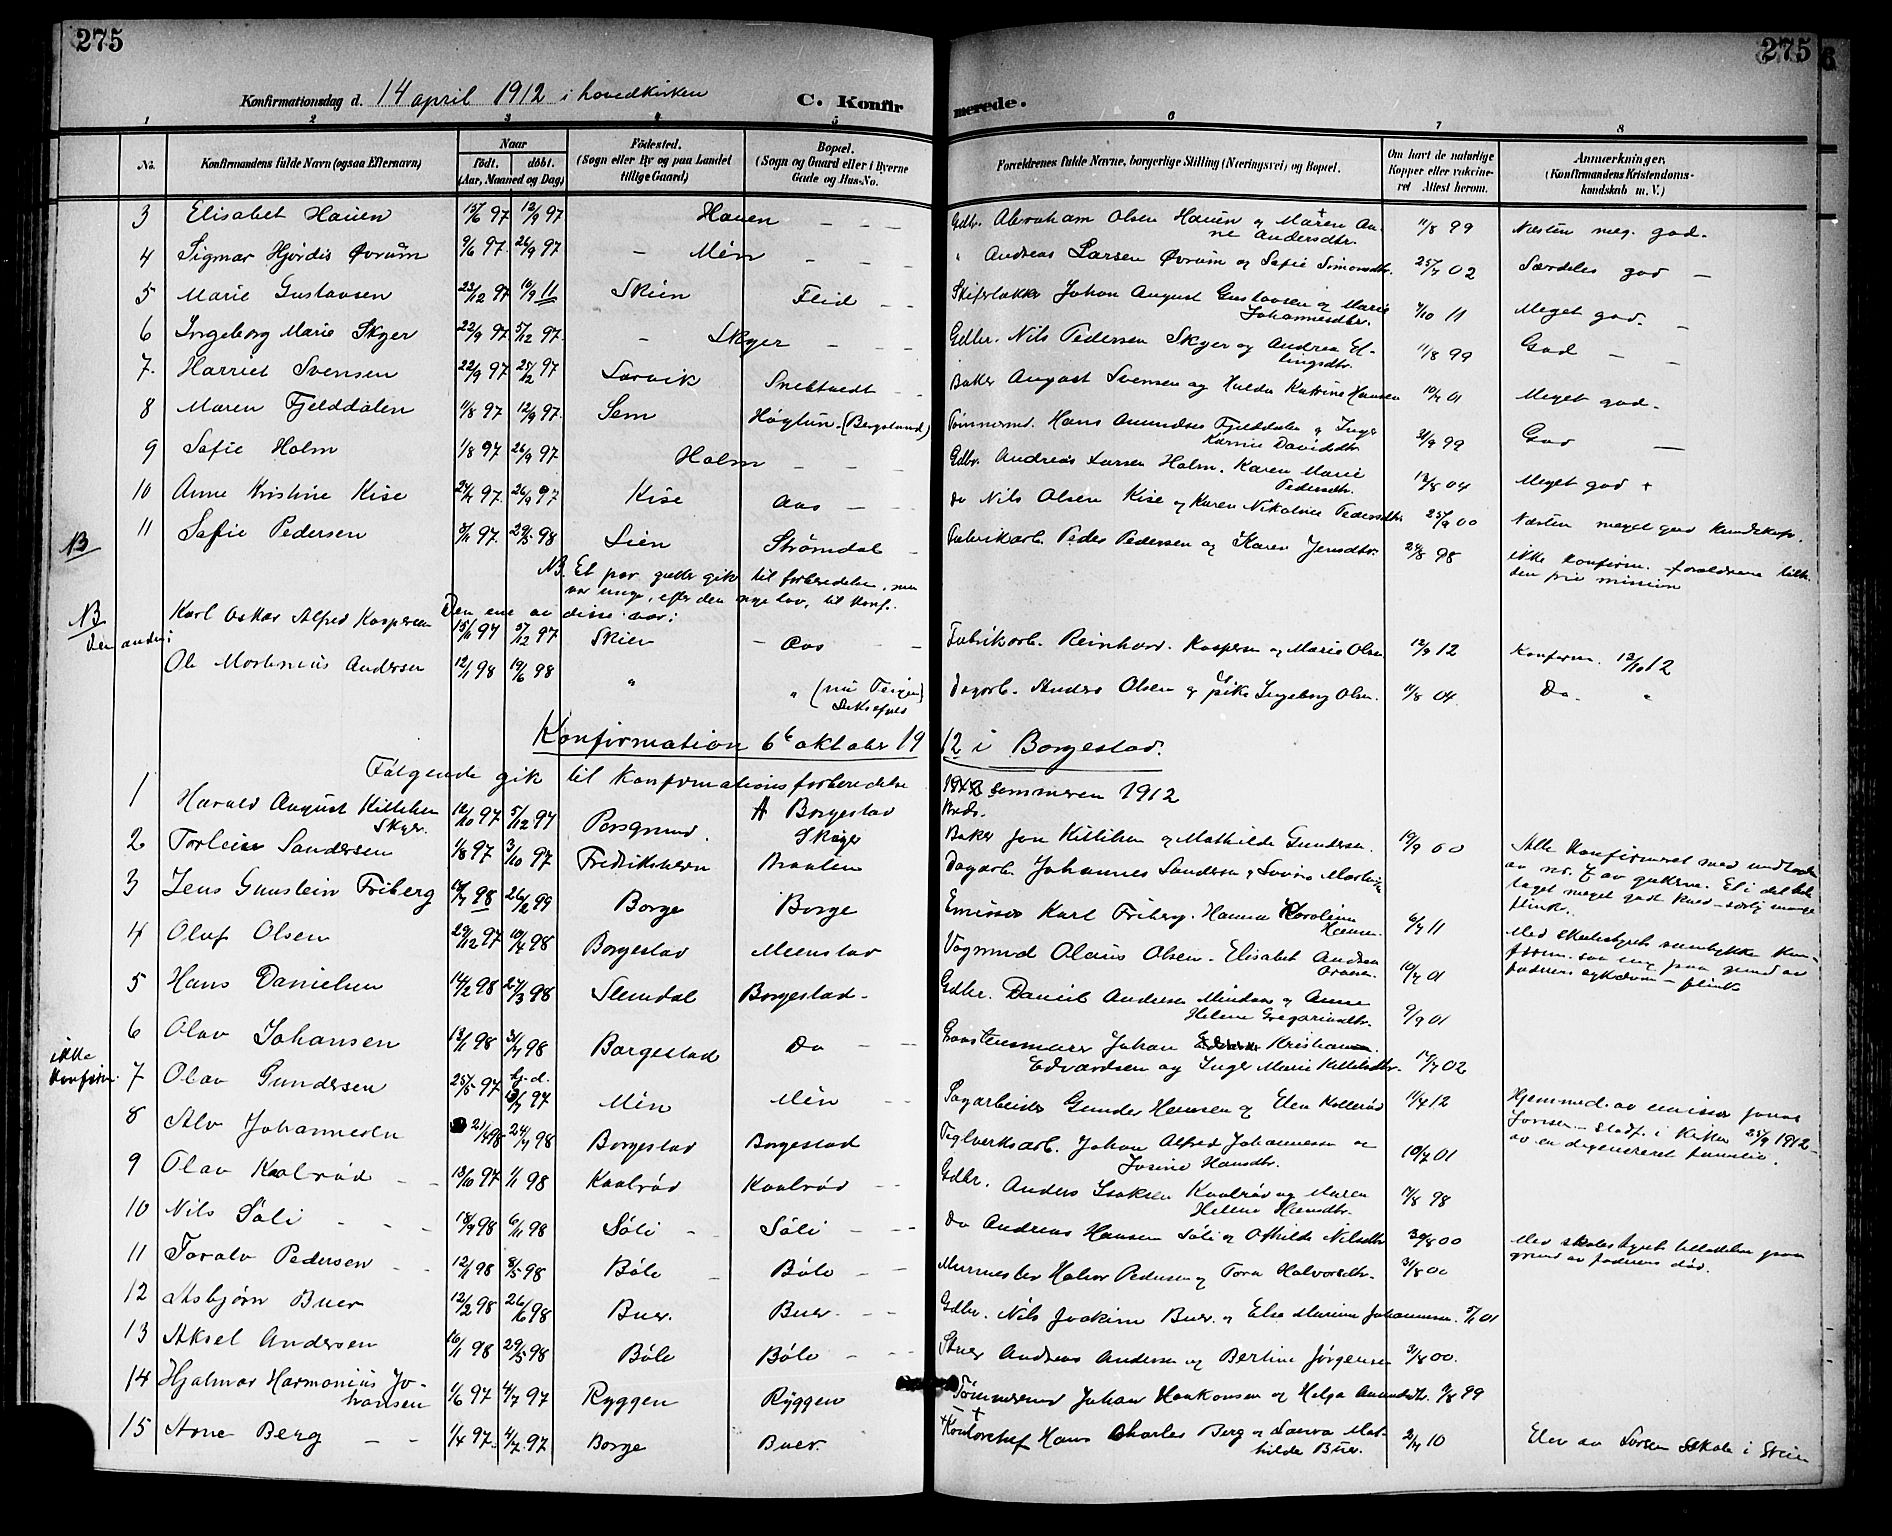 275
275
Konfirmationsdag d. 14 april 1912 i hovedkirken
C. Konfir
merede.
1 2 3 4 5 6 7 8
No.
Konfirmandens fulde Navn (ogsaa Efternavn)
Naar
födt. döbt.
(Aar, Maaned og Dag)
Födested.
(Sogn eller By og paa Landet
tillige Gaard)
Bopæl.
(Sogn og Gaard eller i Byerne
Gade og Hus-No.
Forældrenes fulde Navne, borgerlige Stilling (Næringsvei) og Bopæl.
Om havt de naturlige
Kopper eller vakcine-
ret Attest herom.
Anmærkninger.
(Konfirmandens Kristendoms-
kundskab m. V.)
3 Elisabet Hauen 15/6 97 12/9 97 Hauen Gdbr. Abraham Olsen Hauen og Maren An-
ne Andersdtr. 11/8 99 Næsten meg. god.
4 Sigmar Hjördis Øvrum 9/6 97. 26/9 97 Mén " Andreas Larsen Øvrum og Sofie Simonsdtr. 25/7 02 Særdeles god
5 Marie Gustavsen 23/12 97 10/9 11 Skien Fleid Johan August Gustavsen og Marie
Johannesdtr. 4/10 11 Meget god.
6 Ingeborg Marie Skyer 22/9 97 5/12 97. Skyer Gdbr. Nils Pedersen Skyer og Andrea El-
lingsdtr. 11/8 99 God
7. Harriet Svensen 22/9 97 25/12 97 Larvik Baker August Svensen og Hulda Katrine Hansen 10/7 01 Meget god.
8 Maren Fjelddalen 11/8 97 12/9 97. Sem (Bergsland) Tömmermd. Hans Amundsen Fjelddalen og Inger
Karine Davidsdtr. 31/9 99 God
9 Sofie Holm 1/8 97 26/9 97. Holm Gdbr. Andreas Larsen Holm. Karen Marie
Pedersdtr. 12/8 04 Meget god +
10 Anne Kristine Kise 24/7 97. 26/9 97 Kise Aas Do Nils Olsen Kise og Karen Nikoline Pedersdtr 25/9 00 Næsten meget god kundskap.
NB 11 Sofie Pedersen 8/11 97. 29/5 98 Lien Strömdal Fabrikarb. Peder Pedersen og Karen Jensdtr. 24/8 98 ikke konfirm. forældrene tilh.
den frie mission
NB. Et par gutter gik til forberedelse, men
var unge, efter den nye lov, til konf.
Den ene av disse var:
NB Karl Oskar Alfred Kaspersen 15/11 97 5/12 97 Skien Aas Fabrikarb. Reinhard Kaspersen og Marie Olsen 12/9 12 Konfirm. 13/10 12
Den anden:
Ole Martinius Andersen 12/1 98 19/6 98 " " Dagarb. Andro Olsen og pike Ingeborg Olsen. 11/8 04. Do. "
Konfirmation 6te oktober 19
12 i Borgestad.
Følgende gik til konfirmationsforberedelse
sommeren 1912
1 Harald August Kittilsen
Skyer. 12/10 97 5/12 97 Porsgrund. Borgestad
Skyer Baker Jon Kittilsen og Mathilde Gundersen. 19/9 00
2 Torleiv Sandersen 1/8 97 3/10 97 Fredriksværn Braaten Dagarb. Johannes Sandersen Alle konfirmeret med undtagelse
av no. 7 av gutterne. Et i det hele
taget meget godt kuld – særlig mange
flinke.
3 Jens Gunstein Friberg 98 26/2 99 Borge Borge Emissær Karl Friberg. Hanna Karoline
Hansen. 6/7 11 Med skolestyrets samtykke
4 Oluf Olsen 29/12 97 10/4 98 Borgestad Meenstad Vognmd Olaus Olsen. Elisabet Andrea 10/7 01
faderens sykdom – flink
5 Hans Danielsen 14/2 98 27/3 98 Slemdal Borgestad Gdbr. Daniel Andersen og Anne
Helene Gregoriusdtr. 9/9 01
6 Olav Johansen 13/1 98 31/7 98 Borgestad Do Johan Kristian
Edvardsen og Inger Marie Kittilsdtr. 17/7 02
ikke
konfirm. 7 Olav Gundersen 25/5 97 hj.d. 97 Mén Mén Sagarbeider Gunder Hansen og Elen Kollerød 11/4 12 Hjemmed. av emissær
25/9 1912
av en degenereret familie.
8 Alv Johannesen 21/4 98 24/7 98 Borgestad Borgestad Teglverksarb. Johan Alfred Johannessen og
Josine Hansdtr. 10/7 01
9 Olav Kaalrød 13/10 97 1/1 98 Kaalrød Kaalrød Gdbr. Anders Isaksen Kaalrød og Maren
Helene Hansdtr. 7/8 98
10 Nils Söli 18/9 98 6/11 98 Söli Söli Do Andreas Hansen Söli og Othilde Nilsdtr 30/8 00
11 Toralv Pedersen 12/1 98 8/5 98 Böle Böle Murmester Halvor Pedersen og Tora Halvorsdtr. 31/8 00 Med skolestyrets tilladelse paa
grund av faderens död.
12 Asbjörn Buer 12/2 98 26/6 98 Buer. Buer. Gdbr. Nils Joakim Buer og Else Marine Johannesen. 5/11 01
13 Aksel Andersen 16/1 98 29/5 98 Böle Böle Stuer Andreas Andersen og Bertine Jørgensen 3/8 00.
14 Hjalmar Harmonius Jo-
hansen 1/6 97 4/7 97 Ryggen Ryggen Tömmermd Johan Haakonsen og Helga Amundsdtr. 9/8 99
15 Arne Berg 1/4 97. 4/7 97 Borge Buer. Kontorchef Hans Charles Berg og Laura Mat-
hilde Buer. 2/7 10 Elev av Larsens Skole i Skien